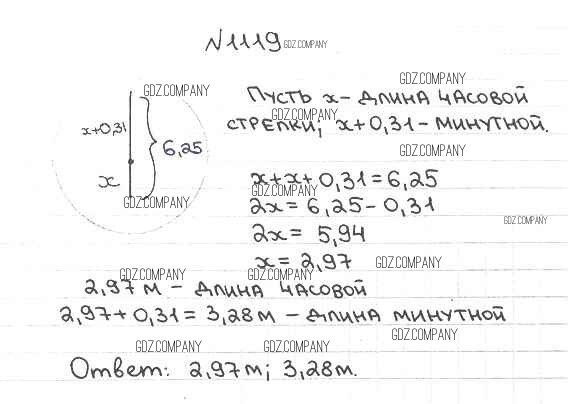 N1119 GDZ.COMPANY
GDZ.COMPANY
GDZ.COMPANY
Пусть x - длина часовой
GDZ.COMPANY
x+0,31
стрелки; x+0,31 - минутной.
6,25
GDZ.COMPANY
x
x+x+0,31=6,25
GDZ.COMPANY
GDZ.COMPANY
2x = 6,25-0,31
GDZ.COMPANY
2x = 5,94
x = 2,97 GDZ.COMPANY
GDZ.COMPANY GDZ.COMPANY
2,97 м - длина часовой
2,97+0,31 = 3,28 м - длина минутной
GDZ.COMPANY
GDZ.COMPANY GDZ.COMPANY
Ответ: 2,97 м; 3,28 м.